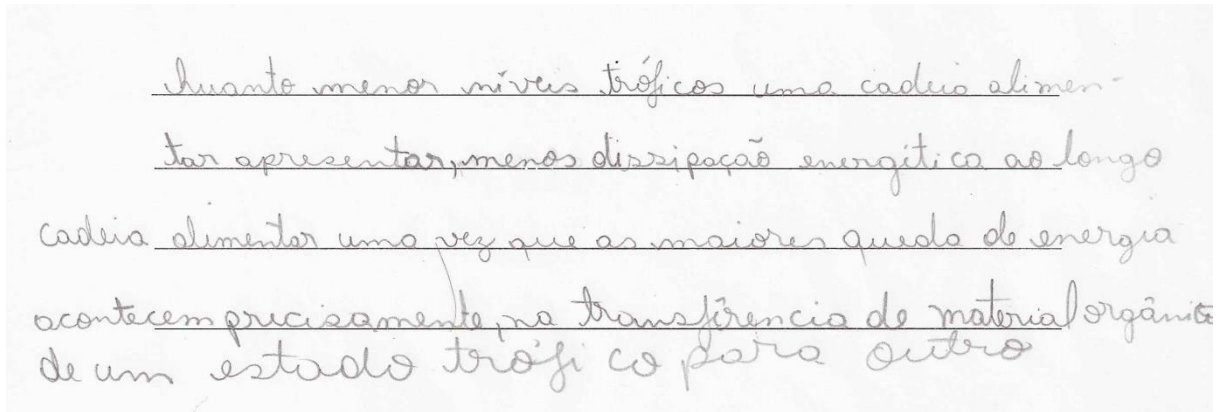 Quanto menor níveis tróficos uma cadeia alimen-
tar apresentar, menos dissipação energética ao longo
cadeia alimentar uma vez que as maiores queda de energia
acontecem precisamente, na transfirencia de material orgânico
de um estado trófico para outro